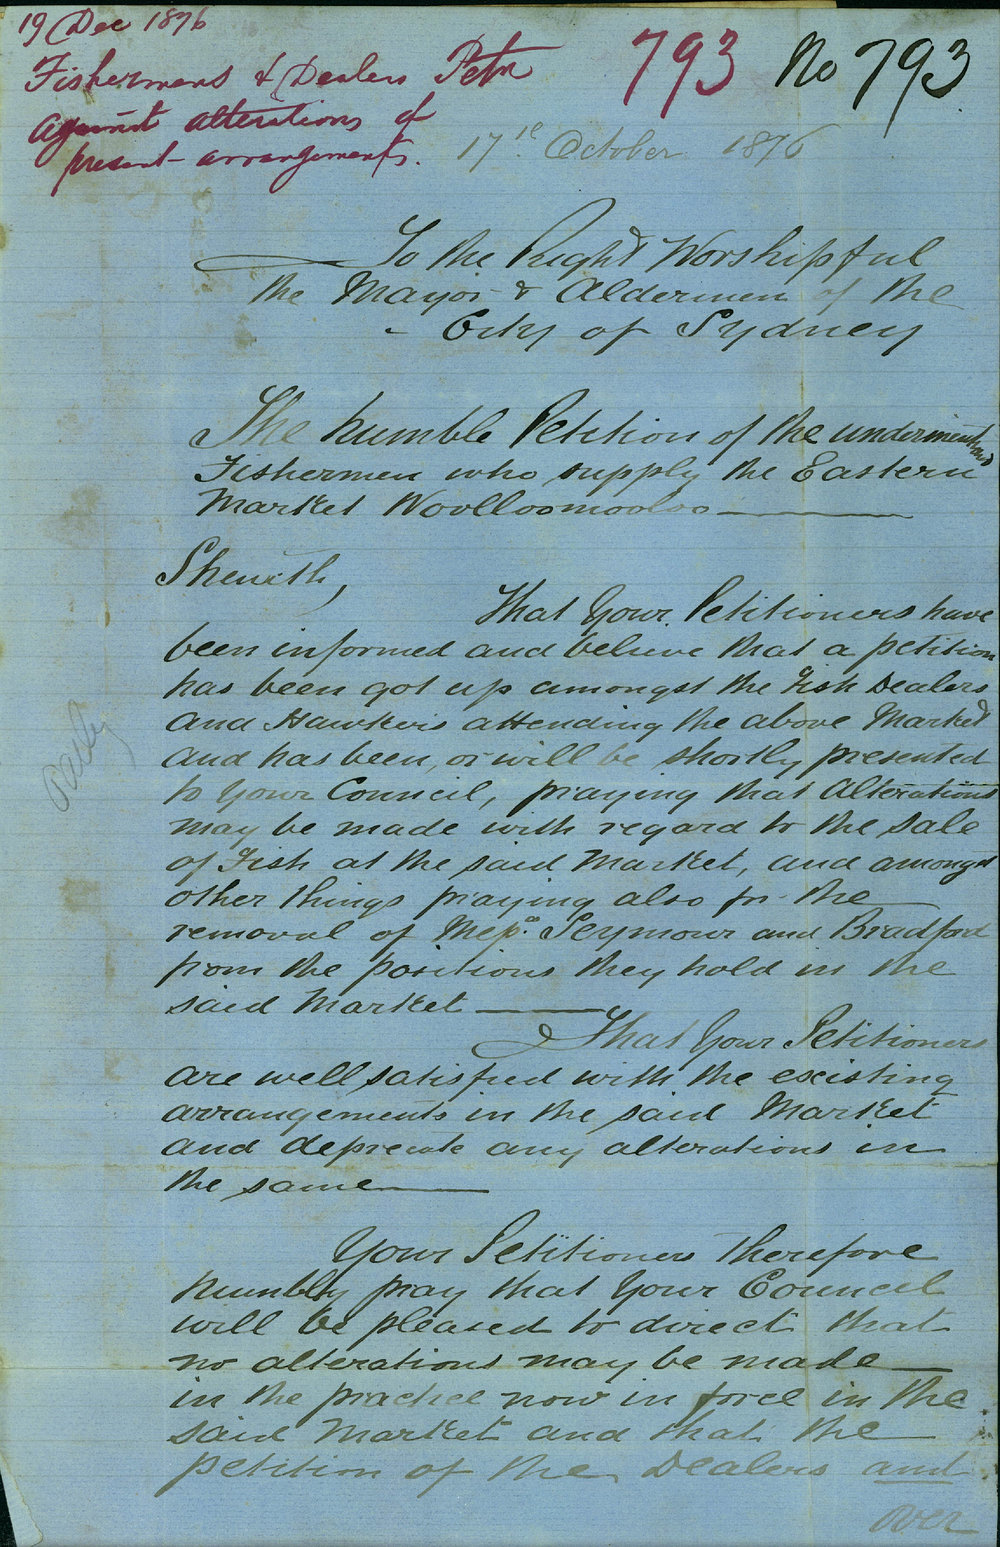 19 Dec 1876
Fishermens & Dealers Petn
against alterations of
present arrangements.
793
No 793
17th October 1876
To the Right Worshipful
the Mayor & Aldermen of the
City of Sydney
The humble Petition of the undermentioned
Fishermen who supply the Eastern
Market Woolloomooloo
Sheweth,
That Your Petitioners have
been informed and believe that a petition
has been got up amongst the Fish Dealers
and Hawkers attending the above Market
and has been, or will be shortly presented
to Your Council, praying that Alterations
may be made with regard to the sale
of Fish at the said Market, and amongst
other things praying also for the
removal of Messrs Seymour and Bradford
from the positions they hold in the
said Market
That Your Petitioners
are well satisfied with the existing
arrangements in the said Market
and deprecate any alterations in
the same
Your Petitioners therefore
humbly pray that Your Council
will be pleased to direct that
no alterations may be made
in the practice now in force in the
said Market and that the
petition of the Dealers and
over